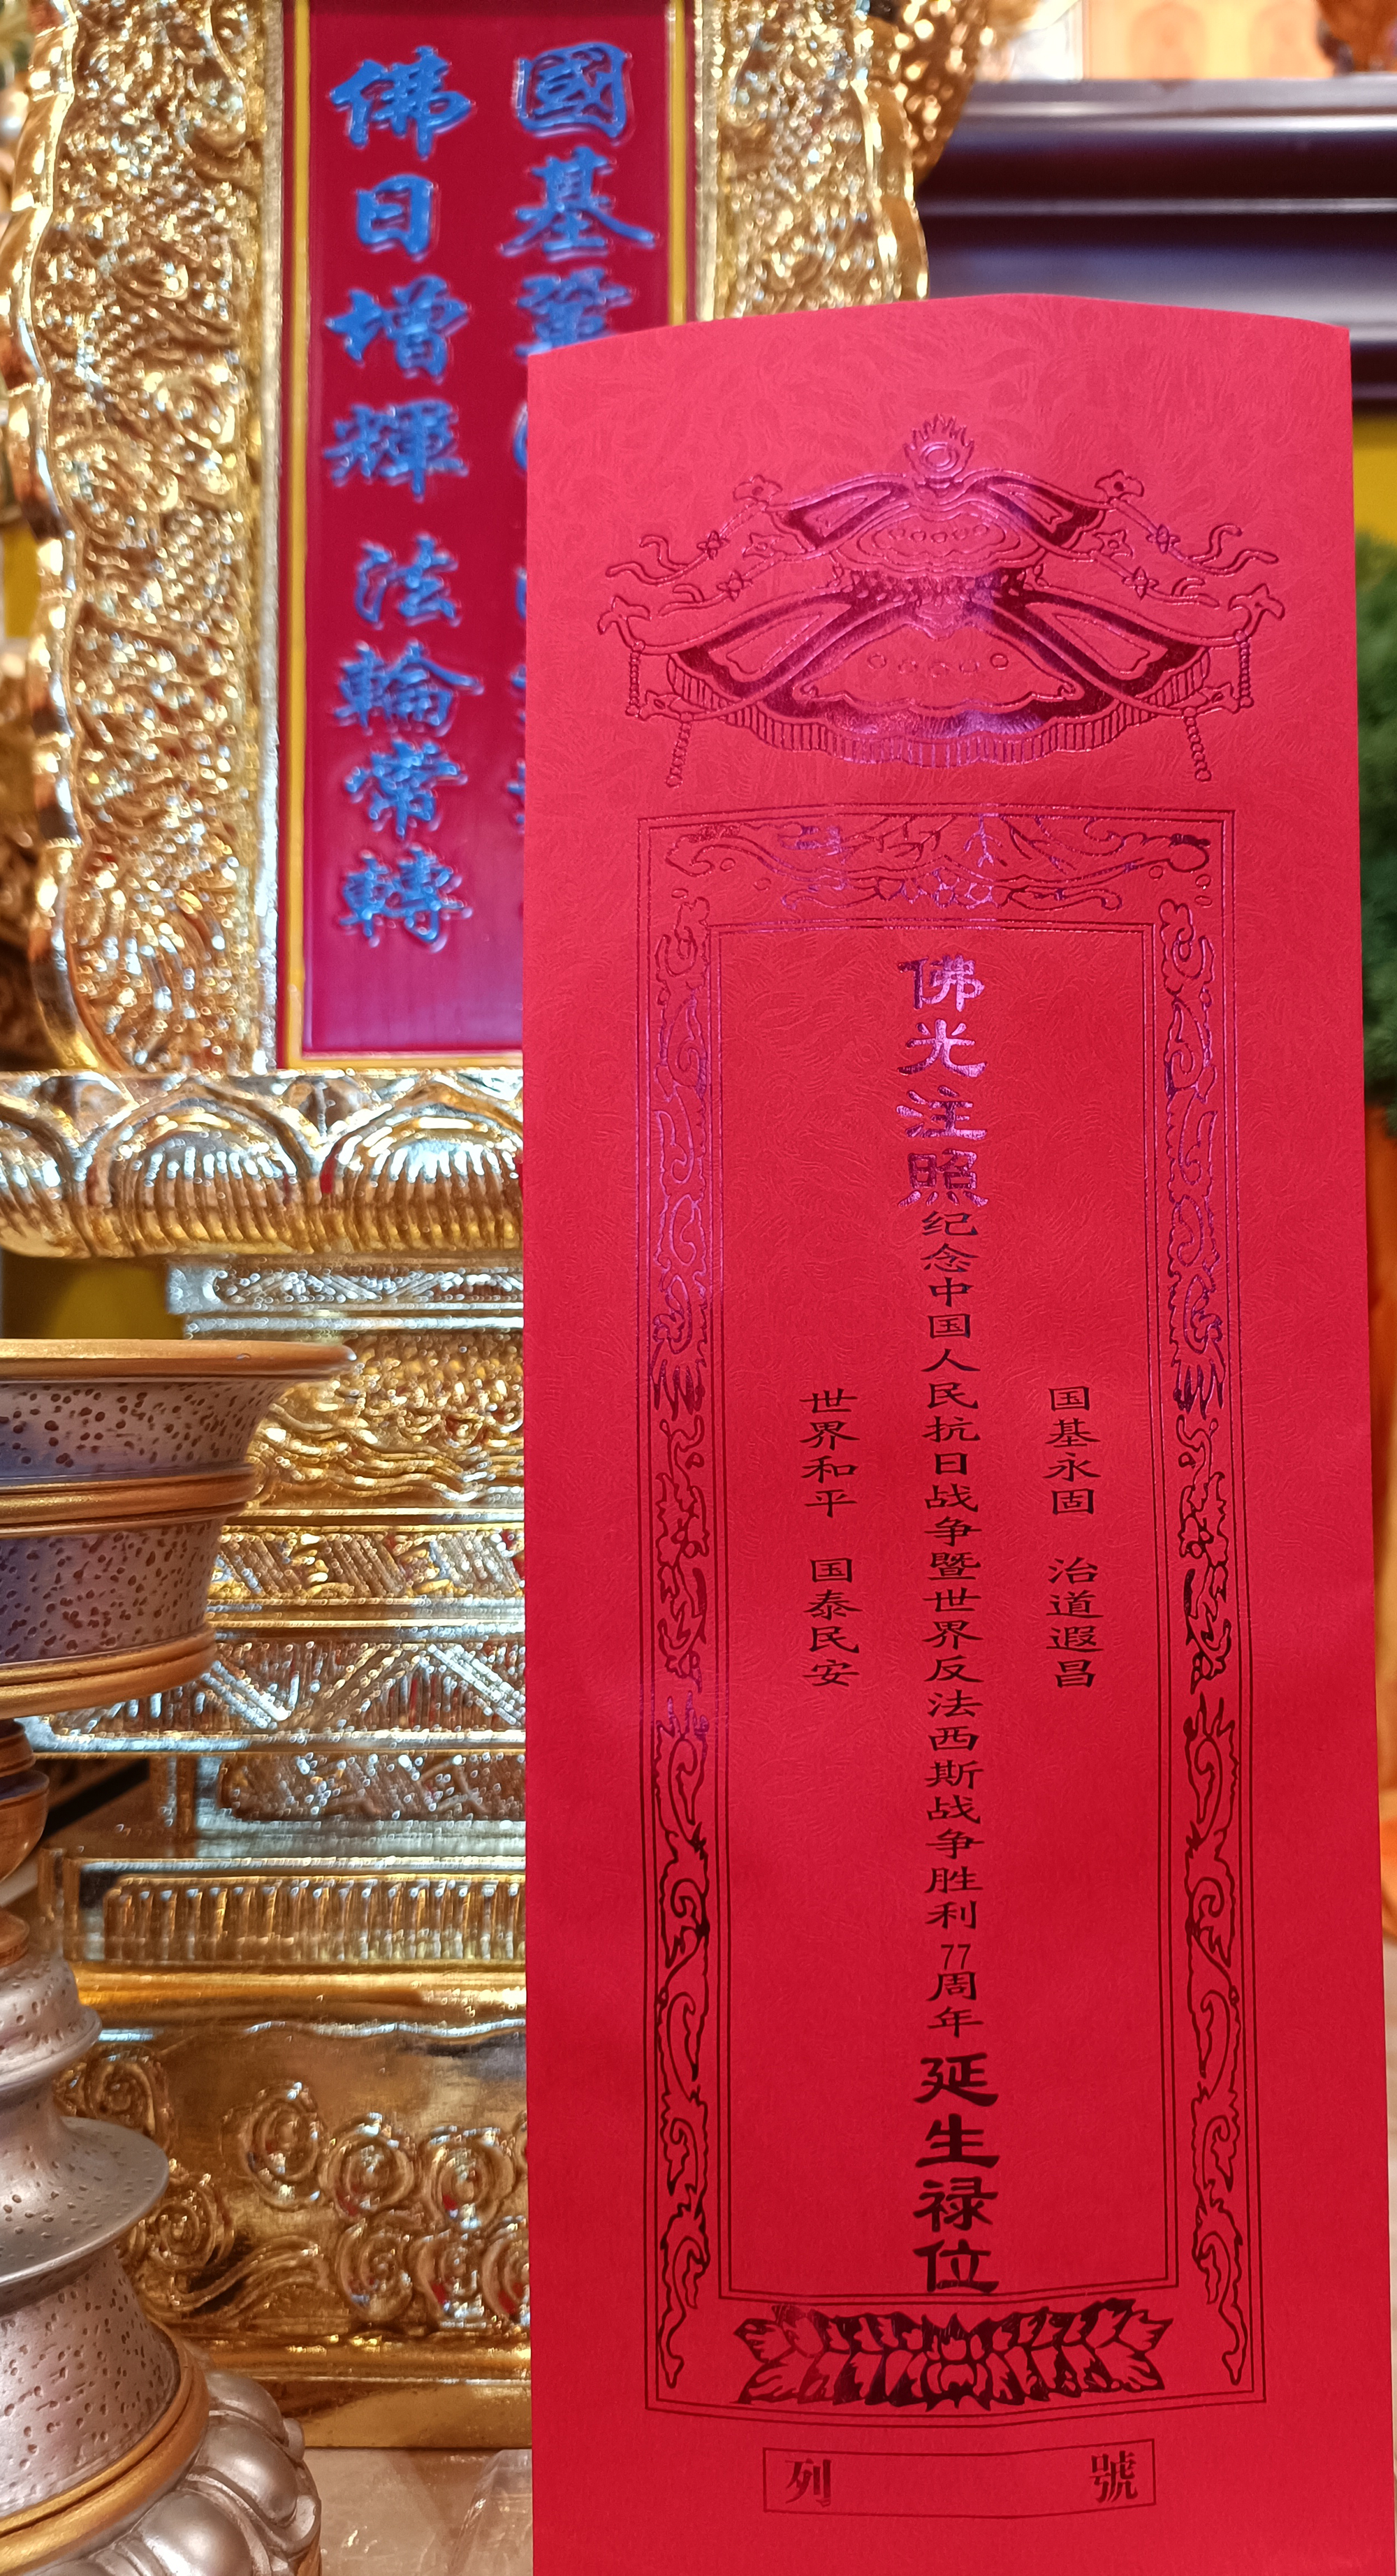 國基鞏
佛日增輝 法輪常轉
国基永固 治道遐昌
佛光注照纪念中国人民抗日战争暨世界反法西斯战争胜利77周年延生禄位
世界和平 国泰民安
列 號